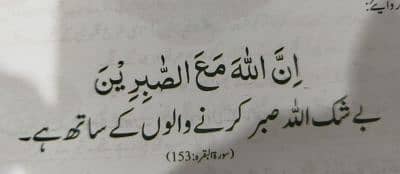 اِنَّ اللّٰهَ مَعَ الصّٰبِرِیْنَ
بے شک اللہ صبر کرنے والوں کے ساتھ ہے۔
(سورۃ البقرہ:153)